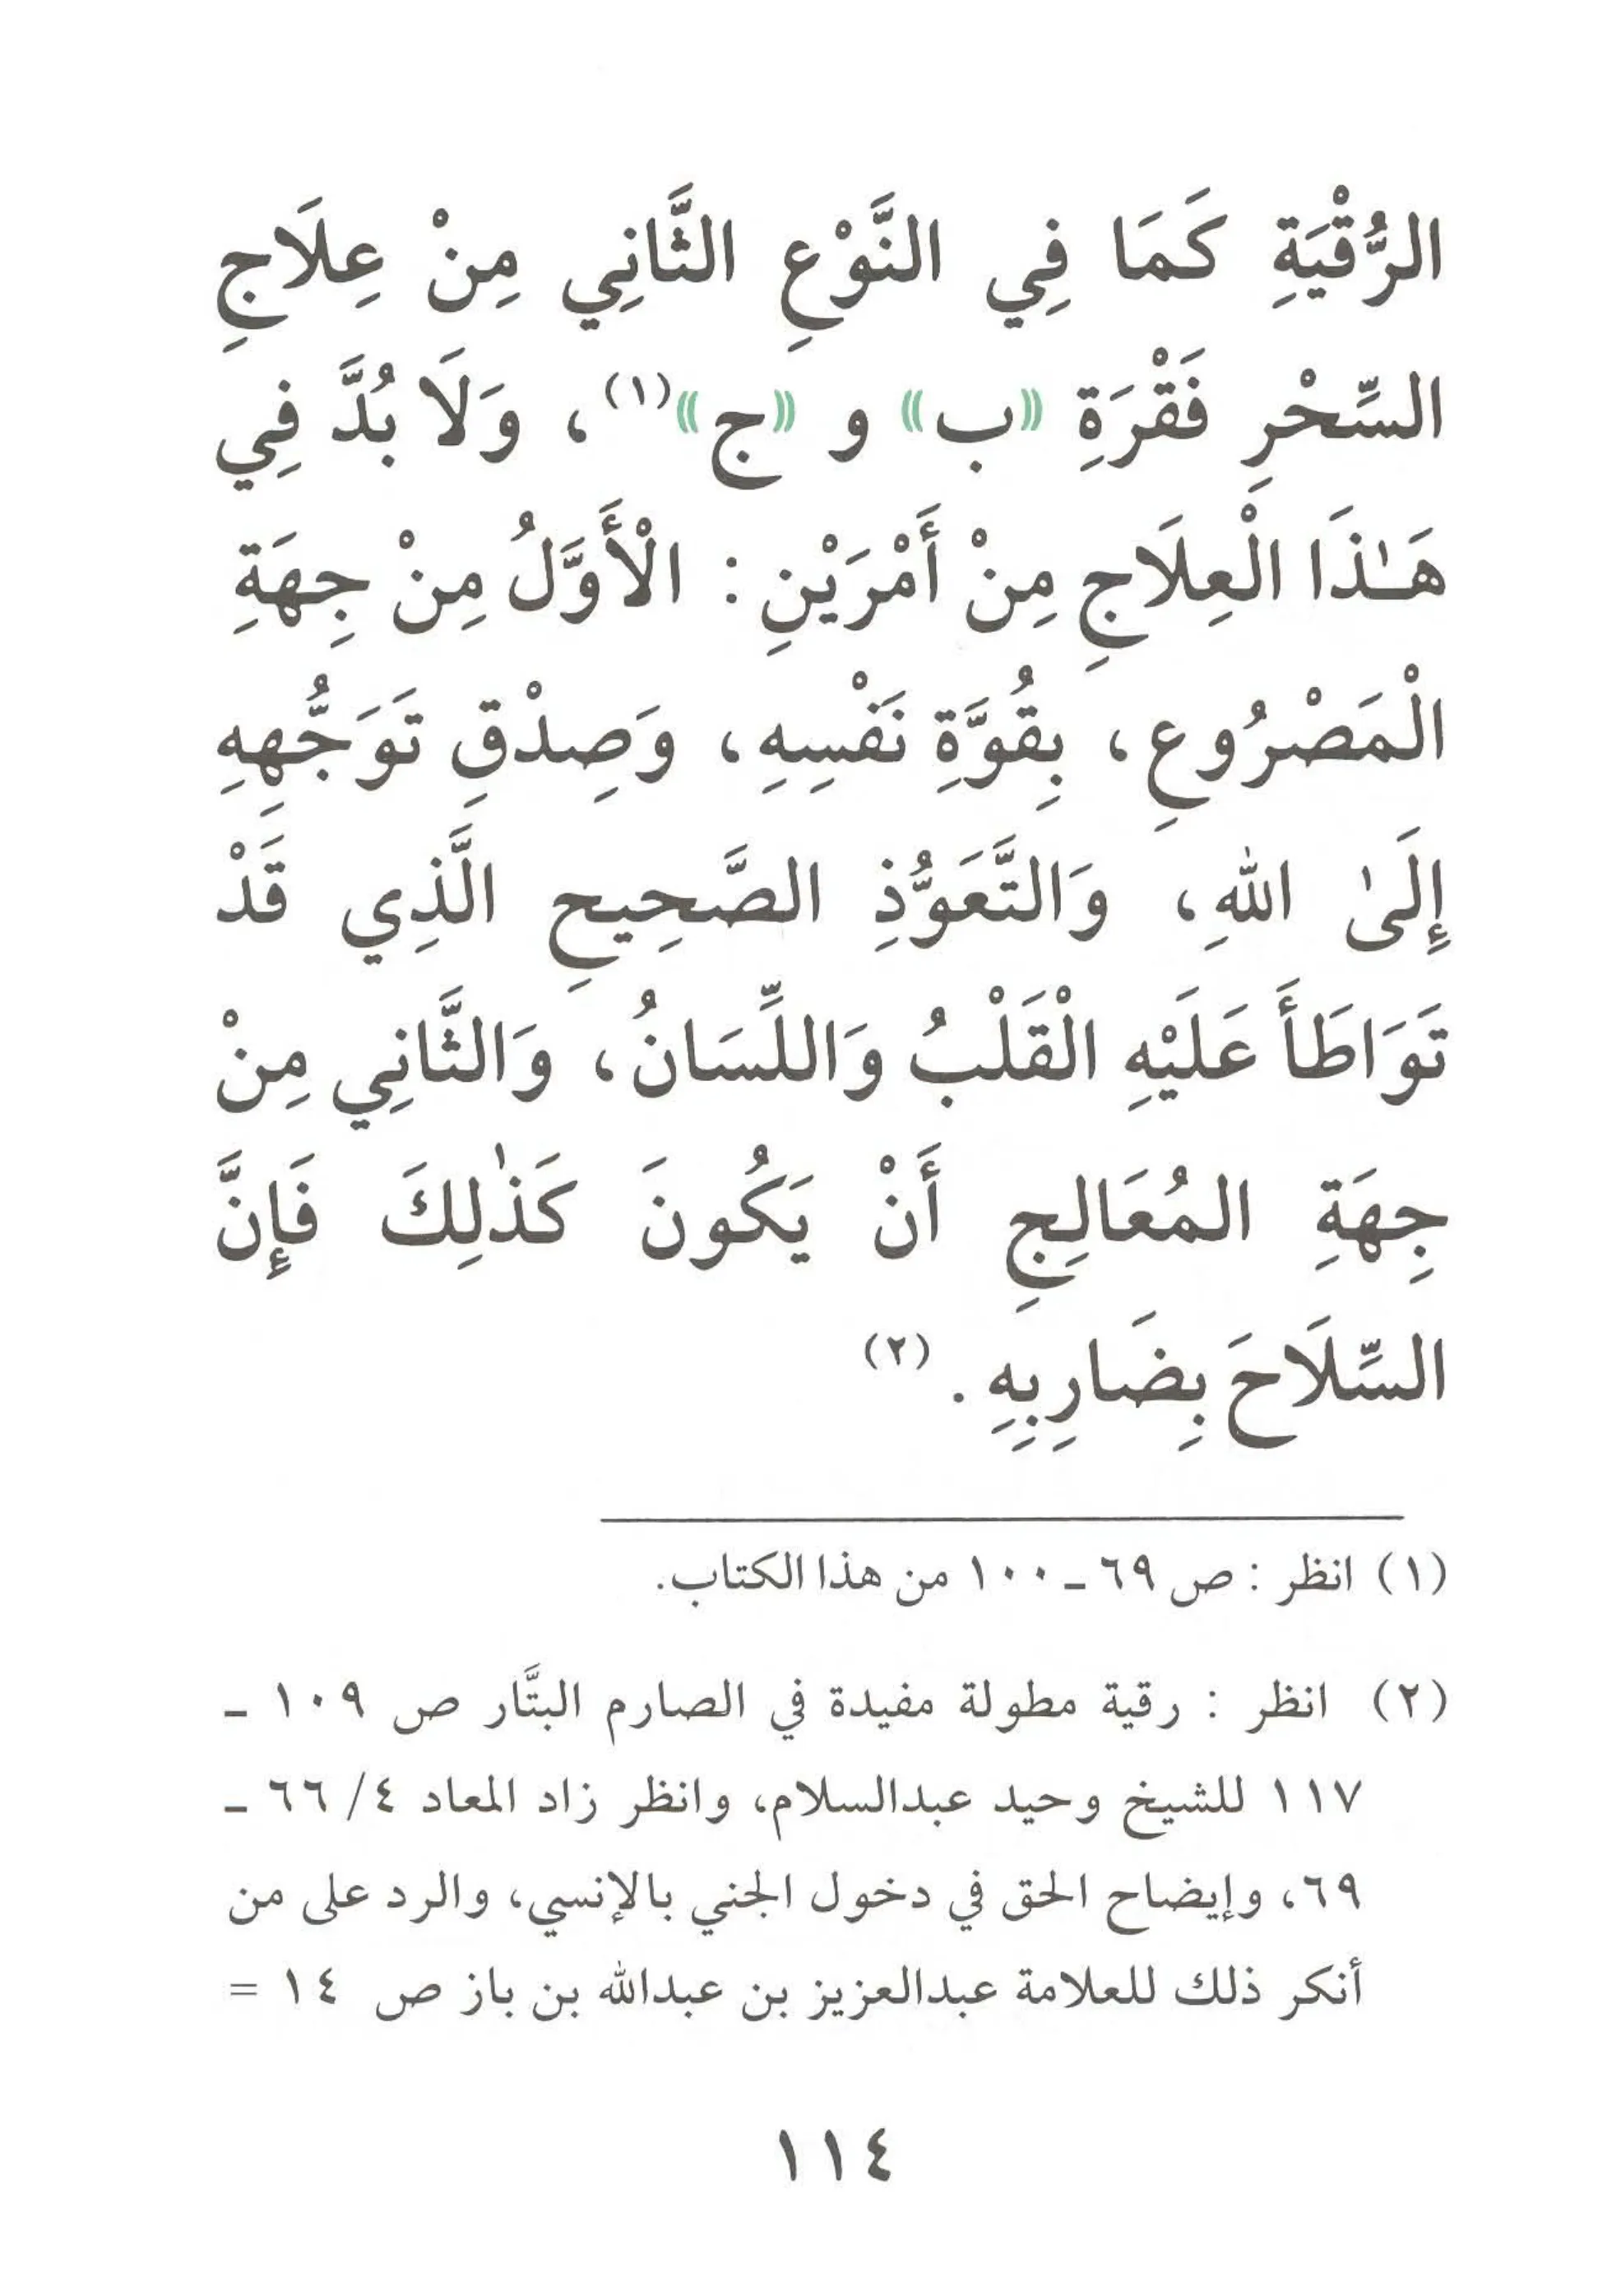 الرُّقْيَةِ كَمَا فِي النَّوْعِ الثَّانِي مِنْ عِلَاجِ
السِّحْرِ فَقْرَةِ «ب» و «ج»(١)، وَلَا بُدَّ فِي
هَـٰذَا الْعِلَاجِ مِنْ أَمْرَيْنِ : الْأَوَّلُ مِنْ جِهَةِ
الْمَصْرُوعِ، بِقُوَّةِ نَفْسِهِ، وَصِدْقِ تَوَجُّهِهِ
إِلَىٰ اللهِ، وَالتَّعَوُّذِ الصَّحِيحِ الَّذِي قَدْ
تَوَاطَأَ عَلَيْهِ الْقَلْبُ وَاللِّسَانُ، وَالثَّانِي مِنْ
جِهَةِ المُعَالِجِ أَنْ يَكُونَ كَذٰلِكَ فَإِنَّ
السِّلَاحَ بِضَارِبِهِ . (٢)
(١) انظر : ص ٦٩ ـ ١٠٠ من هذا الكتاب.
(٢) انظر : رقية مطولة مفيدة في الصارم البتَّار ص ١٠٩ ـ
١١٧ للشيخ وحيد عبدالسلام، وانظر زاد المعاد ٤/ ٦٦ ـ
٦٩، وإيضاح الحق في دخول الجني بالإنسي، والرد على من
أنكر ذلك للعلامة عبدالعزيز بن عبدالله بن باز ص ١٤ =
١١٤